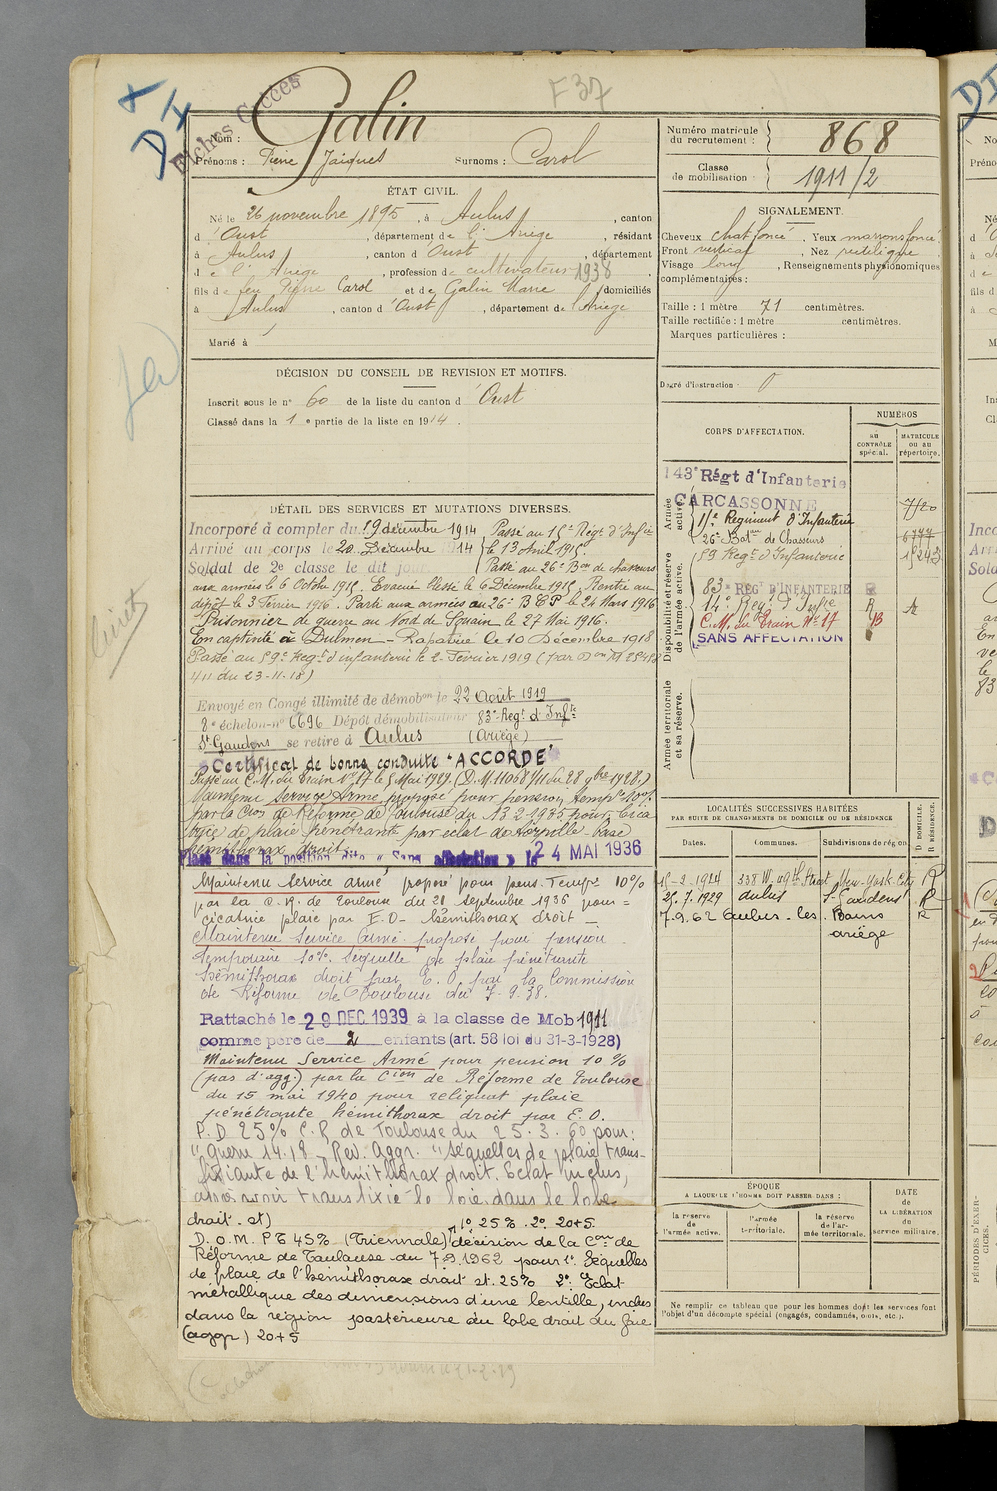 F 37
Fiches Succès
DI
Nom : Galin
Prénoms : Pierre Jacques Surnoms : Carol
Numéro matricule du recrutement : 868
Classe de mobilisation 1911/2
ÉTAT CIVIL.
Né le 26 novembre 1895, à Aulus, canton
d'Oust, département de l'Ariège, résidant
à Aulus, canton d'Oust, département
de l'Ariège, profession de cultivateur 1938
fils de feu Pierre Carol et de Galin Marie, domiciliés
à Aulus, canton d'Oust, département de l'Ariège
Marié à
SIGNALEMENT.
Cheveux chat foncé, Yeux marrons foncé
Front vertical, Nez rectiligne
Visage long, Renseignements physionomiques
complémentaires :
Taille : 1 mètre 71 centimètres.
Taille rectifiée : 1 mètre centimètres.
Marques particulières :
Degré d'instruction : 0
DÉCISION DU CONSEIL DE REVISION ET MOTIFS.
Inscrit sous le n° 60 de la liste du canton d'Oust
Classé dans la 1e partie de la liste en 1914.
DÉTAIL DES SERVICES ET MUTATIONS DIVERSES.
Incorporé à compter du 19 décembre 1914 Passé au Régt d'Infie
Arrivé au corps le 20 Décembre 1914 le 13 Avril 1915.
Soldat de 2e classe le dit jour. Passé au 26e Bon de chasseurs
aux armées le 6 Octobre 1915. Evacué blessé le 6 Décembre 1915. Rentré au
dépôt le 3 Février 1916. Parti aux armées au 26e B C P le 24 Mars 1916
Prisonnier de guerre au Nord de Souain le 27 Mai 1916.
En captivité à Dulmen - Rapatrié le 10 Décembre 1918
Passé au 59e Régt d'infanterie le 2 Février 1919 (par Don M
4/11 du 23-11-18)
Envoyé en Congé illimité de démobon le 22 Août 1919
8e échelon n° 6696 Dépôt démobilisateur 83e Regt d'Infie
St Gaudens se retire à Aulus (Ariège)
Certificat de bonne conduite "ACCORDÉ"
Passé au C.M. du Train N° 17 le 5 Mai 1929. (D.M. 11068 1/11 du 28 9bre 1928.)
Maintenu Service Armé, proposé pour pension tempre 10%
par la Cion de Réforme de Toulouse du 13 2 1935 pour cica
trice de plaie pénétrante par éclat de torpille base
hémithorax droit.
Placé dans la position dite « Sans affectation » le 24 MAI 1936
Maintenu Service armé, proposé pour pens. Tempre 10%
par la C. R. de Toulouse du 21 septembre 1936 pour =
cicatrice plaie par E.O - hémithorax droit -
Maintenu Service Armé proposé pour pension
temporaire 10%. Séquelle de plaie pénétrante
hémithorax droit par E.O. par la Commission
de Réforme de Toulouse du 7-9-38.
Rattaché le 29 DEC 1939 à la classe de Mob 1911
comme père de 2 enfants (art. 58 loi du 31-3-1928)
Maintenu Service Armé pour pension 10 %
(pas d'agg.) par la Cion de Réforme de Toulouse
du 15 mai 1940 pour reliquat plaie
pénétrante hémithorax droit par E.O.
P.D 25% C.R de Toulouse du 25.3.60 pour:
"Guerre 14.18 - Rev. Aggr. "Séquelles de plaie trans-
fixiante de l'hémithorax droit. Eclat inclus,
après avoir transfixié le foie, dans le lobe
droit. st) 1° 25%. 2° 20+5.
D.O.M. P T 45% (Triennale) décision de la Con de
Réforme de Toulouse du 7.9.1962 pour 1° Séquelles
de plaie de l'hémithorax droit st. 25% 2° Eclat
métallique des dimensions d'une lentille, inclus
dans la région postérieure du lobe droit du foie
(aggr) 20+5
CORPS D'AFFECTATION.
NUMÉROS
au CONTRÔLE spécial.
MATRICULE ou au répertoire.
Armée active.
143e Régt d'Infanterie
CARCASSONNE 7120
Régiment d'Infanterie
26e Baton de Chasseurs 6777
Disponibilité et réserve de l'armée active.
59 Regt d'Infanterie
83e REGt D'INFANTERIE R
14e Regt d'Infie R
C.M. du Train N° 17 B
SANS AFFECTATION
Armée territoriale et sa réserve.
LOCALITÉS SUCCESSIVES HABITÉES
PAR SUITE DE CHANGEMENTS DE DOMICILE OU DE RÉSIDENCE
D. DOMICILE. R. RÉSIDENCE.
Dates. Communes. Subdivisions de région
15-2-1924 338 W. 49th Street New-York City R
25.7.1929 Aulus St Gaudens R
7.9.62 Aulus-les Bains R
Ariège
ÉPOQUE
A LAQUELLE L'HOMME DOIT PASSER DANS :
la réserve de l'armée active.
l'armée territoriale.
la réserve de l'armée territoriale.
DATE de LA LIBÉRATION du service militaire.
Ne remplir ce tableau que pour les hommes dont les services font
l'objet d'un décompte spécial (engagés, condamnés, omis, etc.).
PÉRIODES D'EXERCICES.